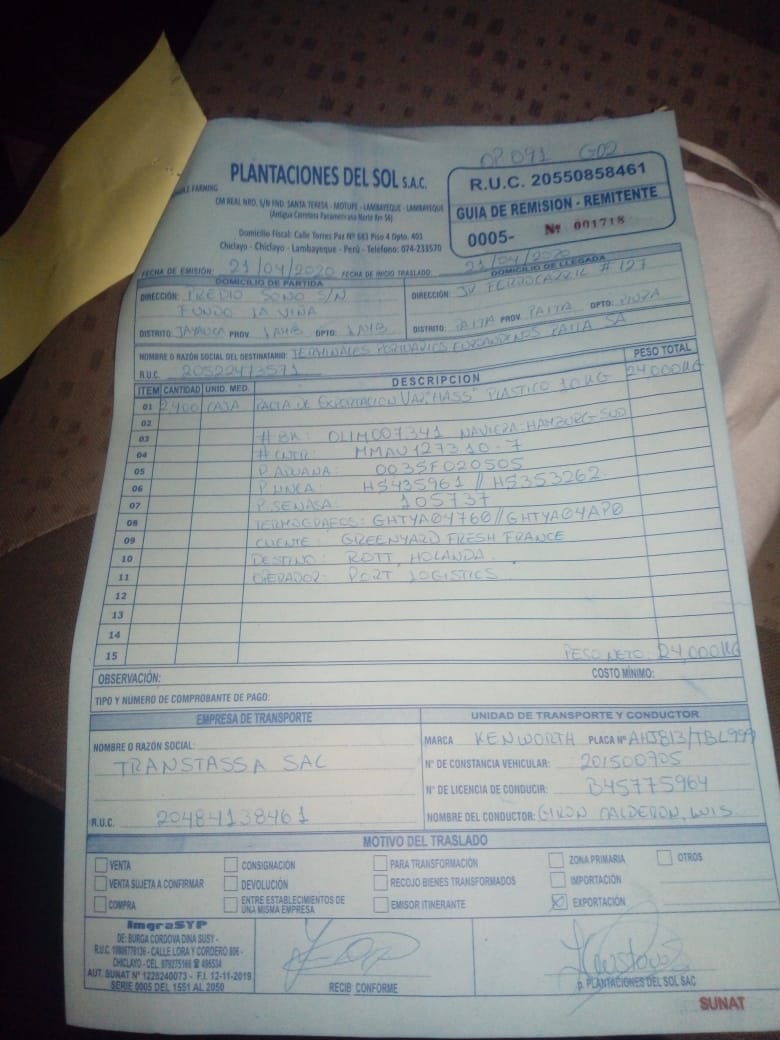 OP 091 G02
PLANTACIONES DEL SOL S.A.C.
FARMING
CM REAL NRO. S/N FND. SANTA TERESA - MOTUPE - LAMBAYEQUE - LAMBAYEQUE
(Antigua Carretera Panamericana Norte Km 56)
Domicilio Fiscal: Calle Torres Paz Nº 683 Piso 4 Dpto. 401
Chiclayo - Chiclayo - Lambayeque - Perú - Telefono: 074-233570
R.U.C. 20550858461
GUIA DE REMISION - REMITENTE
0005- Nº 001718
FECHA DE EMISIÓN: 21/04/2020 FECHA DE INICIO TRASLADO 21/04/2020
DOMICILIO DE PARTIDA
DIRECCIÓN: PREDIO SONO S/N
FUNDO LA VIÑA
DISTRITO: JAYANCA PROV. LAMB DPTO: LAMB
DOMICILIO DE LLEGADA
DIRECCIÓN: JV FERROCARRIL # 127
DISTRITO: PAITA PROV: PAITA DPTO: PIURA
NOMBRE O RAZÓN SOCIAL DEL DESTINATARIO: TERMINALES PORTUARIOS EUROANDINOS PAITA SA
R.U.C. 20522413571
ITEM CANTIDAD UNID. MED. DESCRIPCION PESO TOTAL
01 2,400 CAJA PALTA DE EXPORTACION VAR "HASS" PLASTICO 10 KG 24,000KG
02
03 # BK: OLIM007341 NAVIERA: HAMBURG SUD
04 # CNTR: MMAU127310-7
05 P. ADUANA: 0035F020505
06 P. LINEA: HS435961 // HS353262
07 P. SENASA: 105737
08 TERMOGRAFOS: GHTYA04760//GHTYA04AP0
09 CLIENTE: GREENYARD FRESH FRANCE
10 DESTINO: ROTT, HOLANDA
11 OPERADOR: PORT LOGISTICS
12
13
14
15 PESO NETO: 24,000KG
OBSERVACIÓN: COSTO MÍNIMO:
TIPO Y NÚMERO DE COMPROBANTE DE PAGO:
EMPRESA DE TRANSPORTE
NOMBRE O RAZÓN SOCIAL:
TRANSTASSA SAC
R.U.C. 20484138461
UNIDAD DE TRANSPORTE Y CONDUCTOR
MARCA KENWORTH PLACA Nº AHJ813/TBL999
Nº DE CONSTANCIA VEHICULAR: 201500705
Nº DE LICENCIA DE CONDUCIR: B45775964
NOMBRE DEL CONDUCTOR: GIRON CALDERON, LUIS
MOTIVO DEL TRASLADO
VENTA CONSIGNACIÓN PARA TRANSFORMACIÓN ZONA PRIMARIA OTROS
VENTA SUJETA A CONFIRMAR DEVOLUCIÓN RECOJO BIENES TRANSFORMADOS IMPORTACIÓN
COMPRA ENTRE ESTABLECIMIENTOS DE UNA MISMA EMPRESA EMISOR ITINERANTE EXPORTACIÓN
ImgraSYP
DE: BURGA CORDOVA DINA SUSY -
R.U.C. 10806776136 - CALLE LORA Y CORDERO 806 -
CHICLAYO - CEL. 979275166 ☎ 496534
AUT. SUNAT Nº 1228240073 - F.I. 12-11-2019
SERIE 0005 DEL 1551 AL 2050
RECIBÍ CONFORME
p. PLANTACIONES DEL SOL SAC
SUNAT